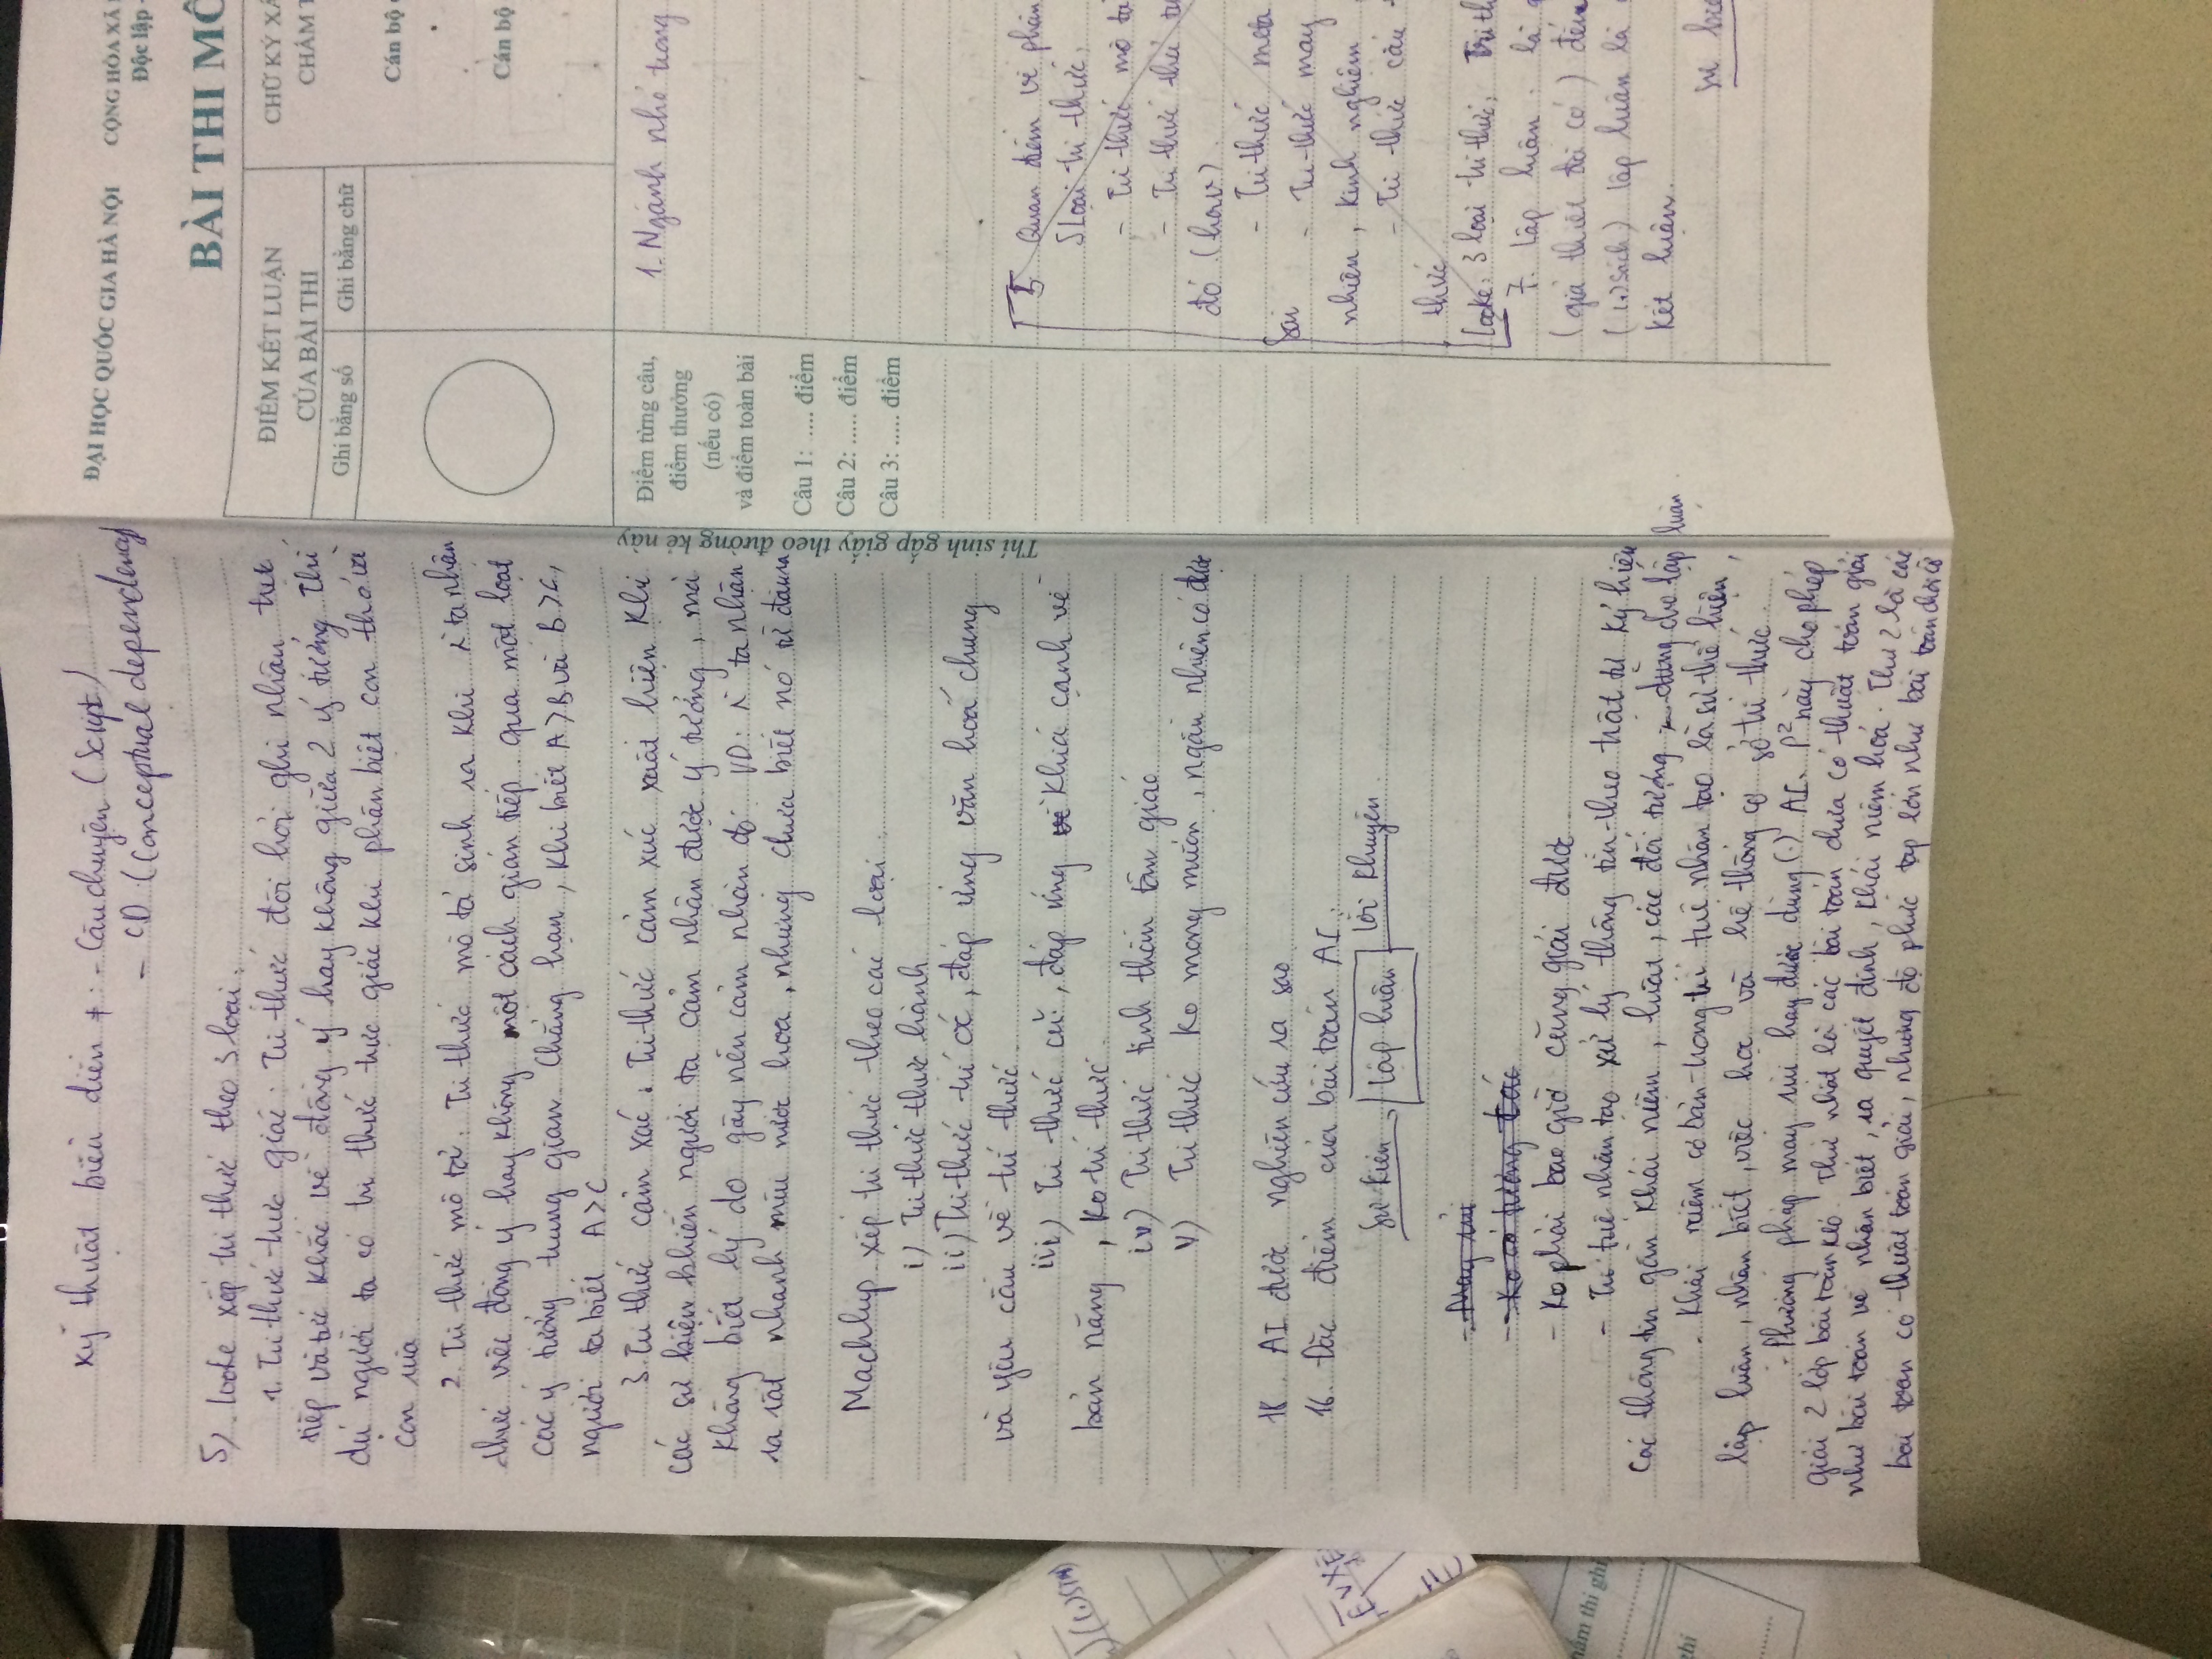 kỹ thuật biểu diễn + : - Câu chuyện (Script)
- CD (Conceptual dependency)
5). Locke xếp tri thức theo 3 loại:
1. Tri thức trực giác: Tri thức đòi hỏi ghi nhận trực
tiếp và tức khắc về đồng ý hay không giữa 2 ý tưởng. Thí
dụ người ta có tri thức trực giác khi phân biệt con thỏ và
con rùa
2. Tri thức mô tả: Tri thức mô tả sinh ra khi ta nhận
thức việc đồng ý hay không một cách gián tiếp qua một loạt
các ý tưởng trung gian. Chẳng hạn, khi biết A>B và B>C,
người ta biết A>C
3. Tri thức cảm xác: Tri thức cảm xúc xuất hiện khi
các sự kiện khiến người ta cảm nhận được ý tưởng, mà
không biết lý do gây nên cảm nhận đó. VD: ta nhận
ra rất nhanh mùi nước hoa, nhưng chưa biết nó từ đâu ra
Machlup xếp tri thức theo các loại:
i) Tri thức thực hành
ii) Tri thức trí óc, đáp ứng văn hoá chung
và yêu cầu về trí thức.
iii) Tri thức cũ, đáp ứng về khía cạnh về
bản năng, ko trí thức.
iv) Tri thức tinh thần tôn giáo
v) Tri thức ko mong muốn, ngẫu nhiên có được
18. AI được nghiên cứu ra sao
16. Đặc điểm của bài toán AI:
Sự kiện Lập luận lời khuyên
- May rủi
- Ko có tương tác
- Ko phải bao giờ cũng giải được
- Trí tuệ nhân tạo xử lý thông tin theo trật tự ký hiệu
Các thông tin gồm khái niệm, luật, các đối tượng dùng cho lập luận
- Khái niệm cơ bản trong trí tuệ nhân tạo là sự thể hiện,
lập luận, nhận biết, việc học và hệ thống cơ sở tri thức.
- Phương pháp may rủi hay được dùng (.) AI. P² này cho phép
giải 2 lớp bài toán khó. Thứ nhất là các bài toán chưa có thuật toán giải
như bài toán về nhận biết, ra quyết định, khái niệm hoá. Thứ 2 là các
bài toán có thuật toán giải, nhưng độ phức tạp lớn như bài toán chơi cờ
Thí sinh gấp giấy theo đường kẻ này
ĐẠI HỌC QUỐC GIA HÀ NỘI CỘNG HÒA XÃ
Độc lập -
BÀI THI MÔ
ĐIỂM KẾT LUẬN
CỦA BÀI THI
CHỮ KÝ XÁ
CHẤM T
Ghi bằng số Ghi bằng chữ
Cán bộ
Cán bộ
Điểm từng câu,
điểm thưởng
(nếu có)
và điểm toàn bài
Câu 1: .... điểm
Câu 2: ..... điểm
Câu 3: ..... điểm
1. Ngành nhỏ trong
5 Quan điểm về phân
5 Loại tri thức:
- Tri thức mô tả
- Tri thức thủ tụ
đó (how)
- Tri thức meta
Sai - Tri thức may
nhiên, kinh nghiệm
- Tri thức cấu t
thức
Locke: 3 loại tri thức: Tri th
7. Lập luận: là q
(giả thiết đã có) đến
(sách) lập luận là
kết luận.